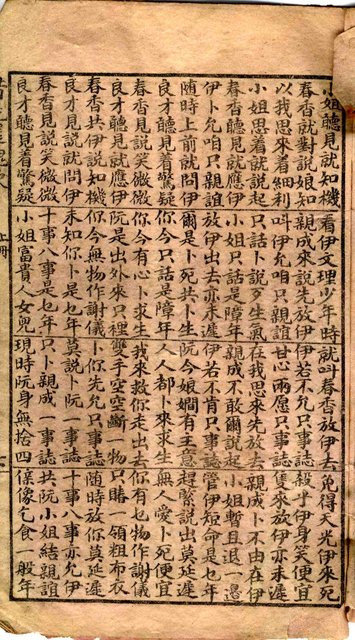 小姐聽見就知機　看伊文理少年時　就叫春香放伊去　免得天光伊來死
春香就對說娘知　親成來說先放伊　伊若不允只事誌　殺乎伊身笑便宜
以我思來着細利　叫伊允咱只親誼　甘心兩愿只事誌　隻來放伊亦未遲
小姐思着就說起　只話卜說歹生氣　在我思來先放去　親成卜不由在伊
春香聽見就應伊　小姐只話是障年　親成不敢爾說起　小姐暫且退一邊
伊卜允咱只親誼　放伊出去亦未遲　伊若不肯只事誌　管伊短命是乜年
隨時上前就問伊　爾是卜死共卜生　阮今娘嫺有主意　趕緊說出莫延遲
良才聽見着驚疑　你今只話是障年　人人都卜來求生　無人愛卜死便宜
春香見說笑微微　你今有心卜求生　我來救你走出去　你有乜物作謝儀
良才聽見就應伊　阮是出外來只裡　雙手空空斷一物　只賭一領粗布衣
春香共伊說知機　你今無物作謝儀　卜你先允只事誌　隨時放你莫延遲
良才見說就問伊　未知你卜是乜年　莫說卜阮一事誌　十事八事亦允伊
春香見說笑微微　十事人事是乜年　只卜親成一事誌　共阮小姐結親誼
良才聽見着驚疑　小姐富貴人女兒　現時阮身無捨四　保像乞食一般年
上冊